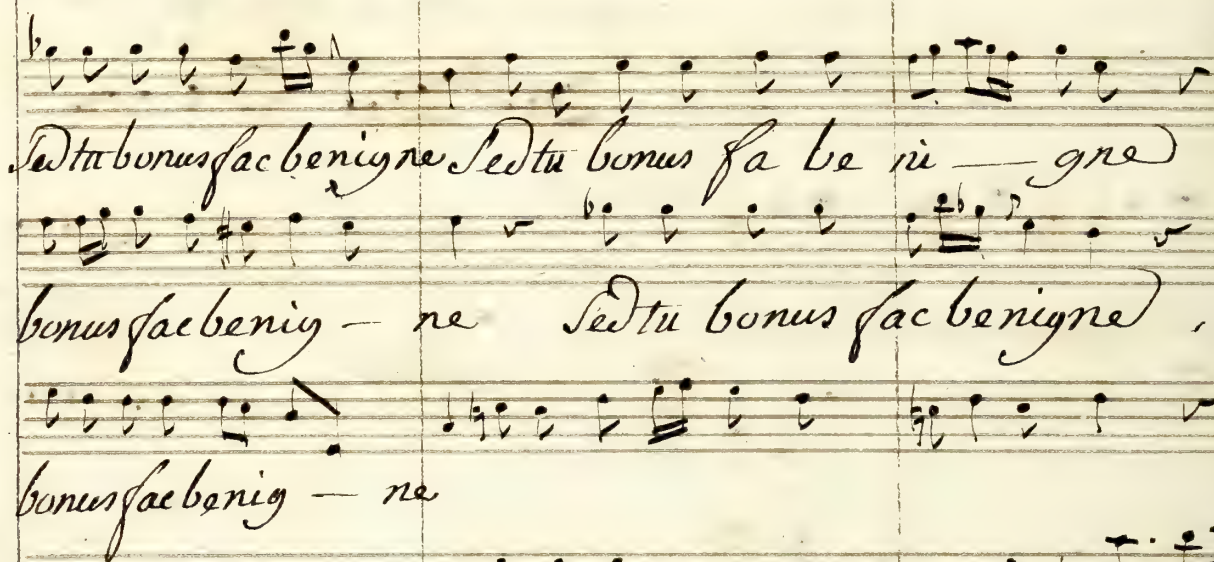 Sed tu bonus fac benigne Sed tu bonus fa be ni — gne
bonus fac benig — ne Sed tu bonus fac benigne
bonus fac benig — ne